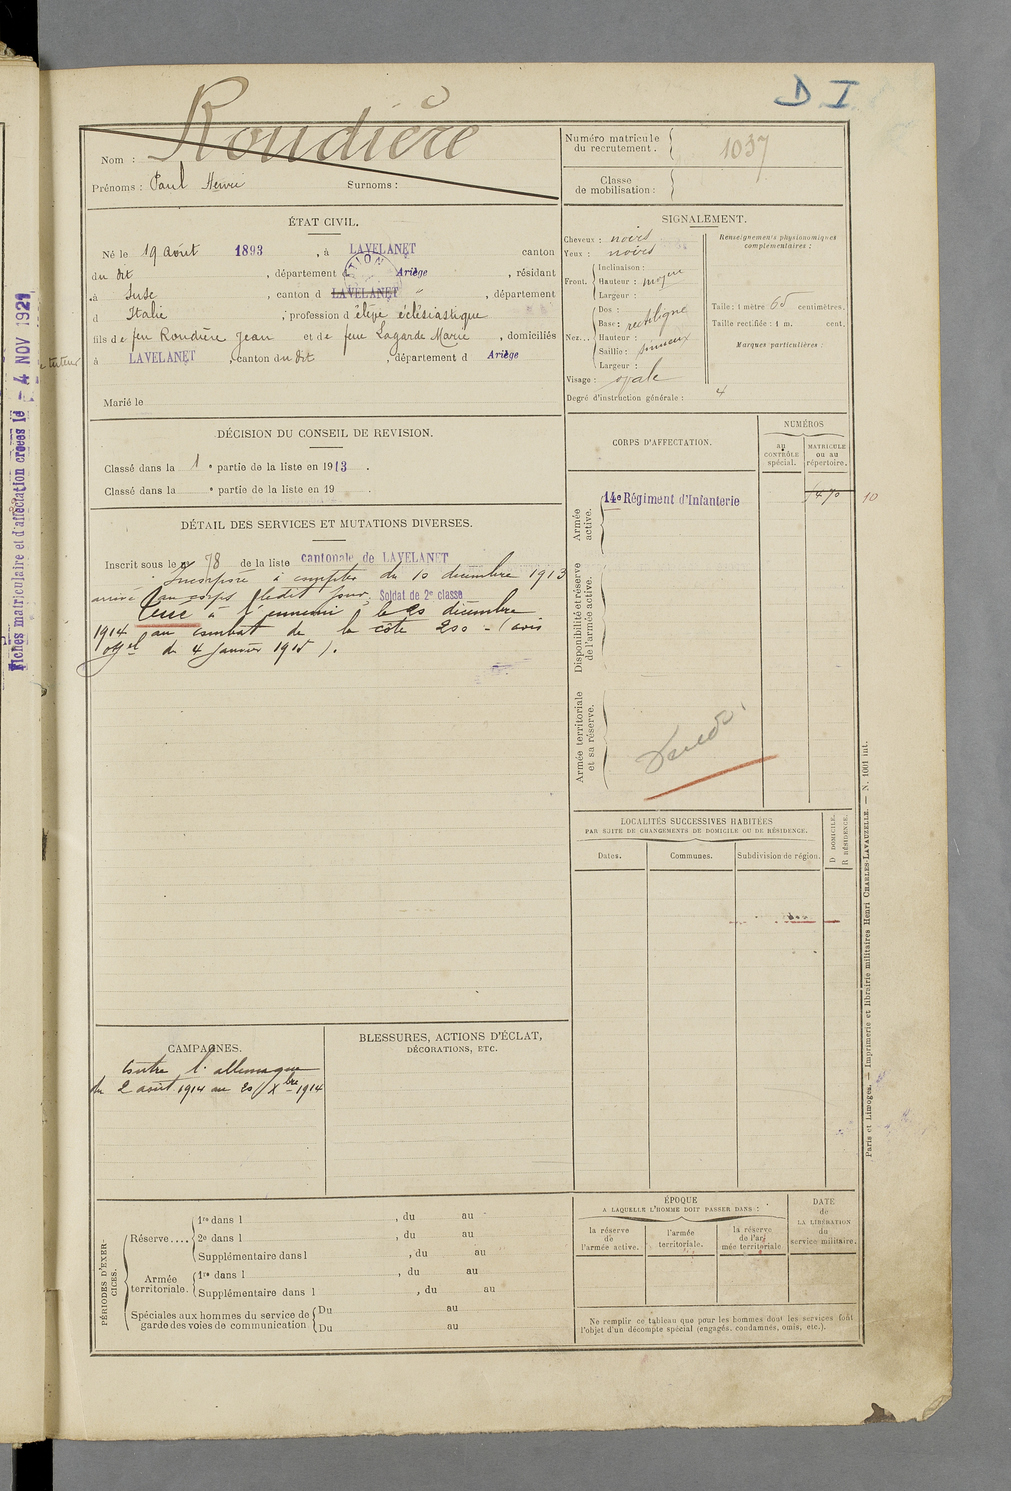 D I
Roudière
Nom :
Prénoms : Paul Henri Surnoms :
Numéro matricule du recrutement. 1037
Classe de mobilisation :
ÉTAT CIVIL.
Né le 19 août 1893, à LAVELANET canton
du dit, département Ariège, résidant
à Suse, canton d LAVELANET ", département
d Italie ; profession d élève éclésiastique
fils de feu Roudière Jean et de feue Lagarde Marie, domiciliés
à LAVELANET, canton du dit, département d Ariège
tuteur
Marié le
SIGNALEMENT.
Cheveux : noirs
Yeux : noirs
Front. Inclinaison :
Hauteur : moyen
Largeur :
Nez... Dos :
Base : rectiligne
Hauteur :
Saillie : sinueux
Largeur :
Visage : ovale
Degré d'instruction générale : 4
Renseignements physionomiques complémentaires :
Taille : 1 mètre 65 centimètres.
Taille rectifiée : 1 m. cent.
Marques particulières :
DÉCISION DU CONSEIL DE REVISION.
Classé dans la 1e partie de la liste en 1913.
Classé dans la e partie de la liste en 19 .
DÉTAIL DES SERVICES ET MUTATIONS DIVERSES.
Inscrit sous le n° 78 de la liste cantonale de LAVELANET
Incorporé à compter du 10 décembre 1913
arrivé au corps ledit jour, Soldat de 2e classe
Tué à l'ennemi le 20 décembre
1914 au combat de la côte 200 - (avis
offel du 4 janvier 1915).
CORPS D'AFFECTATION.
NUMÉROS
au CONTRÔLE spécial.
MATRICULE ou au répertoire.
Armée active.
14e Régiment d'Infanterie
1470
10
Disponibilité et réserve de l'armée active.
Armée territoriale et sa réserve.
LOCALITÉS SUCCESSIVES HABITÉES
PAR SUITE DE CHANGEMENTS DE DOMICILE OU DE RÉSIDENCE.
Dates.
Communes.
Subdivision de région.
D DOMICILE.
R RÉSIDENCE.
CAMPAGNES.
Contre l'allemagne
du 2 août 1914 au 20 Xbre 1914
BLESSURES, ACTIONS D'ÉCLAT,
DÉCORATIONS, ETC.
PÉRIODES D'EXERCICES.
Réserve.... 1re dans l , du au
2e dans l , du au
Supplémentaire dans l , du au
Armée territoriale. 1re dans l , du au
Supplémentaire dans l , du au
Spéciales aux hommes du service de garde des voies de communication
Du au
Du au
ÉPOQUE
A LAQUELLE L'HOMME DOIT PASSER DANS :
la réserve de l'armée active.
l'armée territoriale.
la réserve de l'armée territoriale
DATE de LA LIBÉRATION du service militaire.
Ne remplir ce tableau que pour les hommes dont les services font
l'objet d'un décompte spécial (engagés, condamnés, omis, etc.).
Paris et Limoges. — Imprimerie et librairie militaires Henri CHARLES-LAVAUZELLE. — N. 1001 int.
Fiches matriculaire et d'affectation créées le - 4 NOV 1921